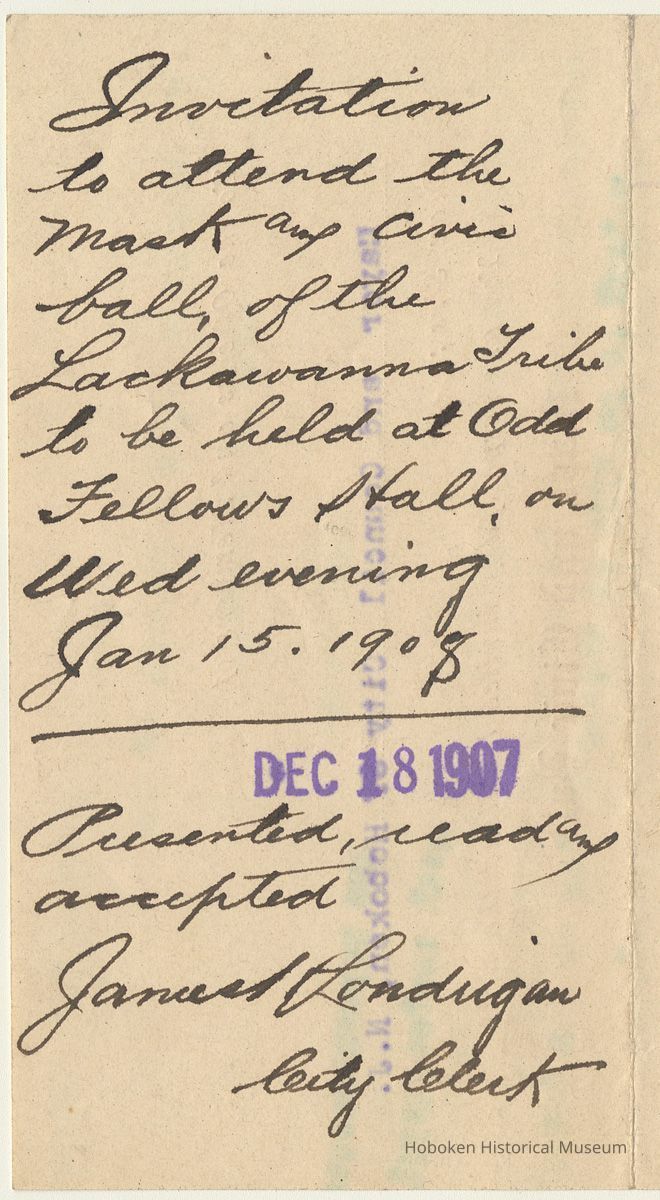 Invitation
to attend the
Mask and Civic
ball, of the
Lackawanna Tribe
to be held at Odd
Fellows Hall, on
Wed evening
Jan 15. 1908
DEC 18 1907
Presented, read and
accepted
James H Londrigan
City Clerk
Hoboken Historical Museum